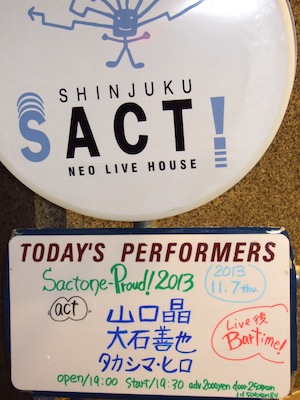 SHINJUKU
SACT!
NEO LIVE HOUSE
TODAY'S PERFORMERS
Sactone-Proud! 2013
2013
11.7 thu.
act
山口晶
大石善也
タカシマ・ヒロ
Live後
Bartime!
open/19:00 Start/19:30 adv 2000yen door 2500yen